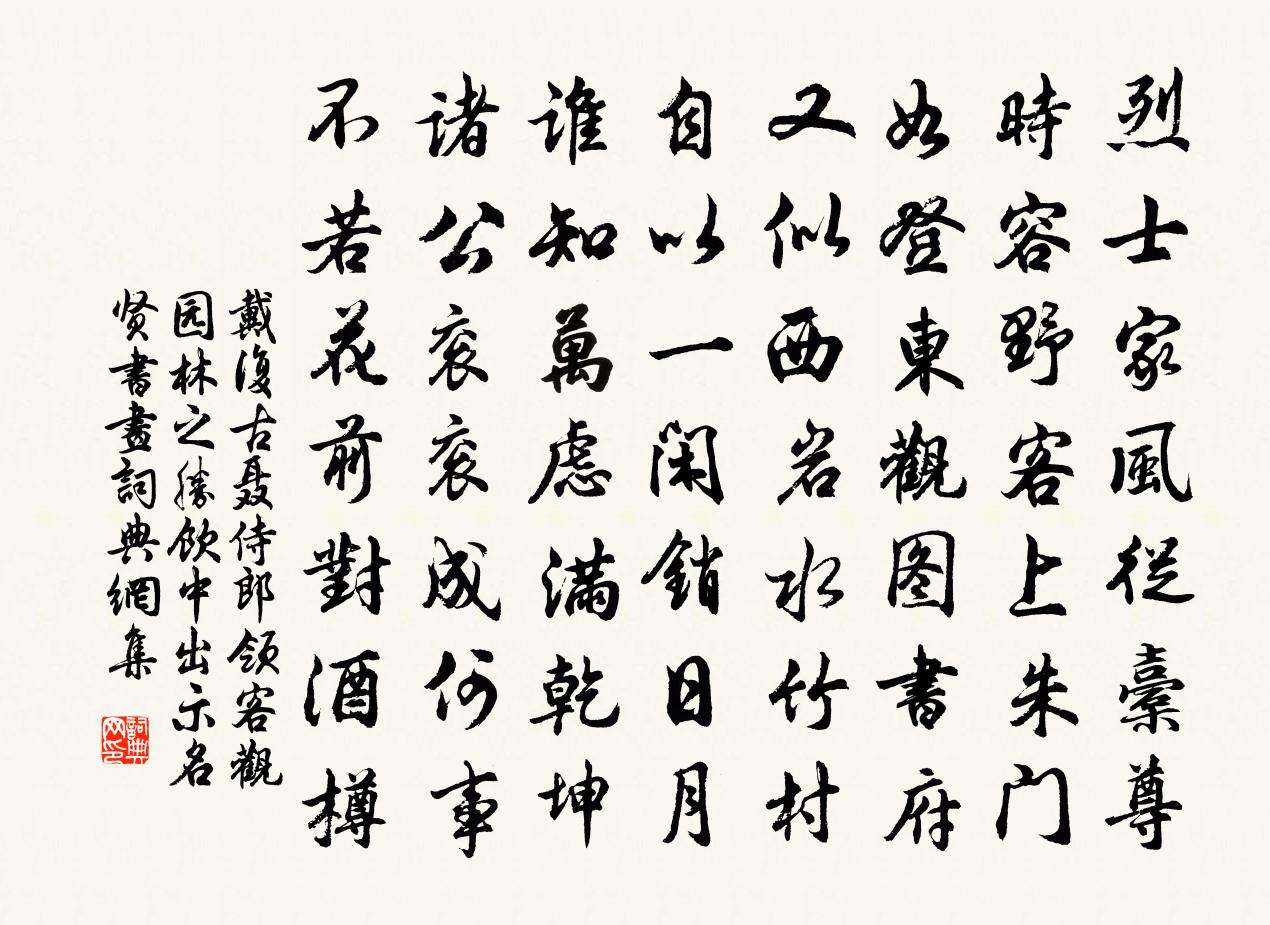 烈士家風從橐尊
時容野客上朱门
如登東觀图書府
又似西岩水竹村
自以一閑銷日月
谁知萬慮滿乾坤
诸公衮衮成何事
不若花前對酒樽
戴復古聂侍郎領客觀
园林之勝飲中出示名
贤書畫詞典網集
詞典网印